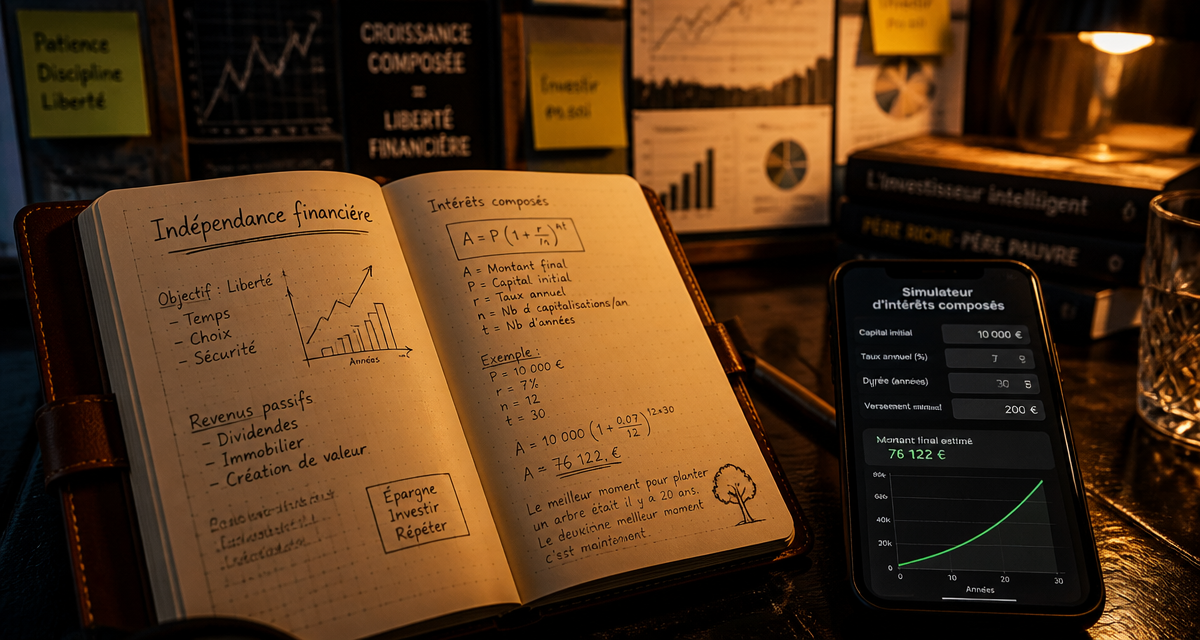 Patience
Discipline
Liberté
CROISSANCE
COMPOSÉE
=
LIBERTÉ
FINANCIÈRE
Investir
Investir
L'investisseur intelligent
PÈRE RICHE PÈRE PAUVRE
Indépendance financiére
Objectif : Liberté
- Temps
- Choix
- Sécurité
Années
Revenus passifs
- Dividendes
- Immobilier
- Création de valeur
Épargne
Investir
Répéter
Intérêts composés
A = P (1 + r/n)^nt
A = Montant final
P = Capital initial
r = Taux annuel
n = Nb d capitalisations/an
t = Nb d'années
Exemple :
P = 10 000 €
r = 7%
n = 12
t = 30
A = 10 000 (1 + 0.07/12)^12×30
A = 76 122. €
Le meilleur moment pour planter
un arbre était il y a 20 ans.
Le deuxième meilleur moment
c'est maintenant.
Simulateur
d'intérêts composés
Capital initial 10 000 €
Taux annuel (%) 7
Durée (années) 30
Versement 200 €
Montant final estimé
76 122 €
60k
40k
20k
0
0 10 20 30
Années